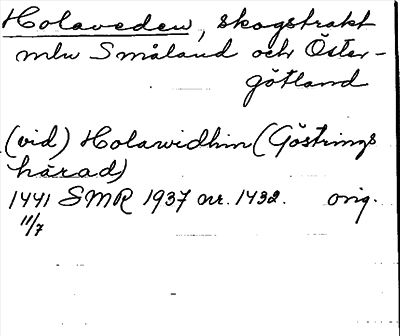 Holaveden, skogstrakt
mln Småland och Öster-
götland
(vid) Holawidhin (Göstrings
härad)
1441 SMR 1937 nr. 1432. orig.
11/7